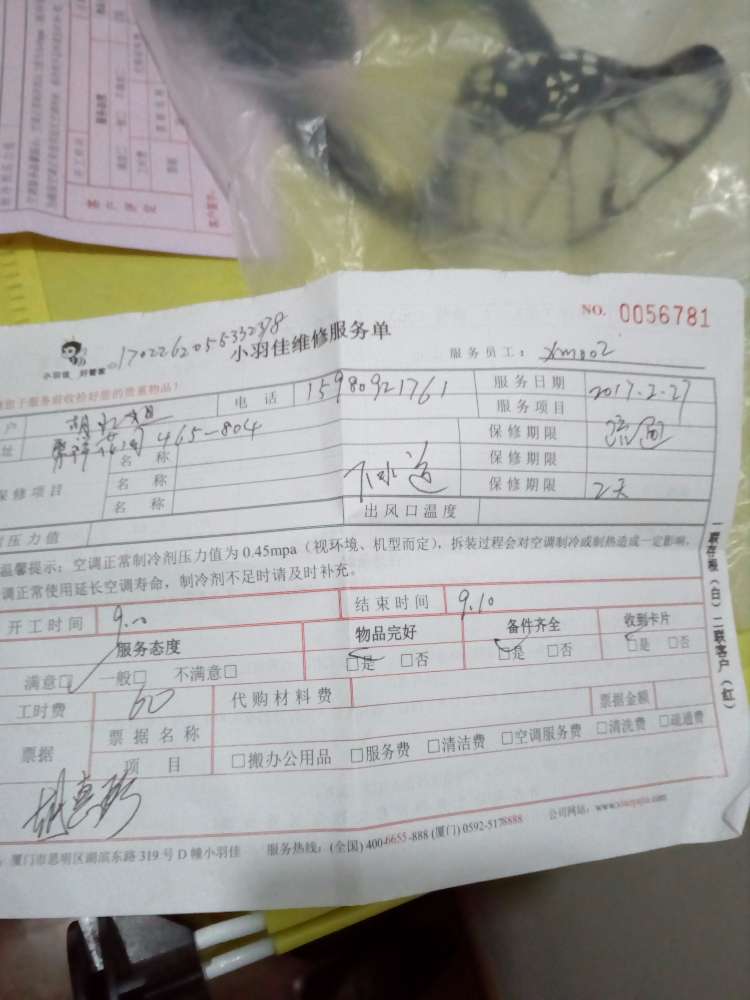 NO. 0056781
小羽佳 好管家
1702262055332378
小羽佳维修服务单
服务员工： xm002
电 话 15980921761
服务日期 2017.2.27
服务项目
户
址 465-804
保修期限
名 称
保修项目 名 称 下水道 保修期限
名 称 保修期限 2天
压力值 出风口温度
温馨提示：空调正常制冷剂压力值为 0.45mpa（视环境、机型而定），拆装过程会对空调制冷或制热造成一定影响，
调正常使用延长空调寿命，制冷剂不足时请及时补充。
开工时间 9.00 结束时间 9.10
服务态度 物品完好 备件齐全 收到卡片
满意□ 一般□ 不满意□ □是 □否 □是 □否 □是 □否
工时费 60 代购材料费 票据金额
票据 票据名称
项 目 □搬办公用品 □服务费 □清洁费 □空调服务费 □清洗费 □疏通费
厦门市思明区湖滨东路 319 号 D 幢小羽佳 服务热线：(全国) 400-6655-888 (厦门) 0592-5178888 公司网站：www.xiaoyujia.com
一联存根（白）二联客户（红）